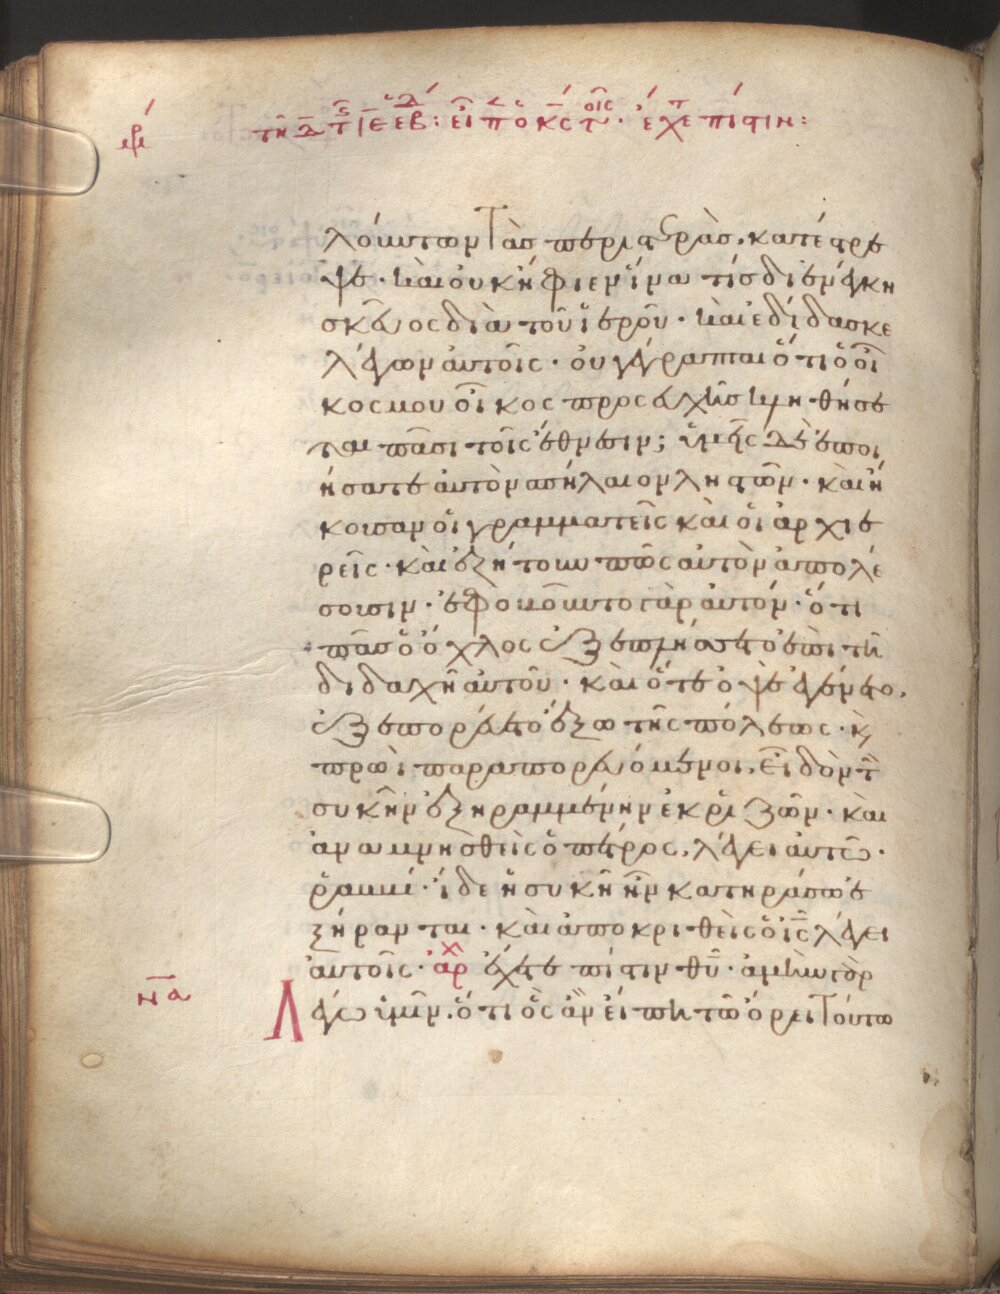 τῇ δ τῆς ιε ἑβδ: εἶπεν ὁ κς τοῖς· ἔχετε πίστιν:
λούντων τὰς περιστερὰς, κατέστρε
ψε· καὶ οὐκ ἤφιεν ἵνα τίς διενέγκη
σκεῦος διὰ τοῦ ἱεροῦ· καὶ ἐδίδασκε
λέγων αὐτοῖς· οὐ γέγραπται ὅτι ὁ οἶ
κος μου οἶκος προσευχῆς κληθήσε
ται πᾶσι τοῖς ἔθνεσιν; ὑμεῖς δὲ ἐποι
ήσατε αὐτὸν σπήλαιον ληστῶν· καὶ ἤ
κουσαν οἱ γραμματεῖς καὶ οἱ ἀρχιε
ρεῖς· καὶ ἐζήτουν πῶς αὐτὸν ἀπολέ
σουσιν· ἐφοβοῦντο γὰρ αὐτόν· ὅτι
πᾶς ὁ ὄχλος ἐξεπλήσσετο ἐπὶ τῆ
διδαχῆ αὐτοῦ· καὶ ὅτε ὀψὲ ἐγένετο,
ἐξεπορεύετο ἔξω τῆς πόλεως· κ
πρωῒ παραπορευόμενοι, εἶδον τὴν
συκῆν ἐξηραμμένην ἐκ ῥιζῶν· καὶ
ἀναμνησθεὶς ὁ πέτρος, λέγει αὐτῶ·
ῥαββί· ἴδε ἡ συκῆ ἣν κατηράσω ἐ
ξήρανται· καὶ ἀποκριθεὶς ὁ ις λέγει
αὐτοῖς· ἀρχ ἔχετε πίστιν θυ· ἀμὴν γὰρ
να
Λέγω ὑμῖν, ὅτι ὃς ἂν εἴπη τῶ ὄρει τούτω